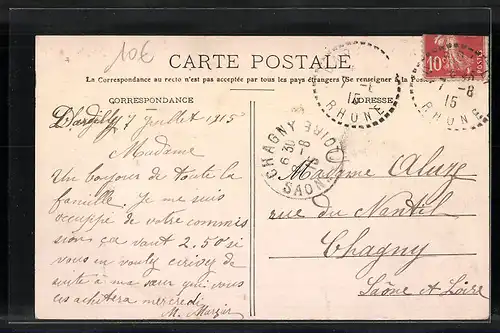 10€
CARTE POSTALE
La Correspondance au recto n'est pas acceptée par tous les pays étrangers (Se renseigner à la Poste
CORRESPONDANCE
ADRESSE
7 juillet 1915
Madame
Un bonjour de toute la
famille. Je me suis
occupé de votre commis
sion ça vaut 2.50 si
vous en voulez écrivez de
suite à ma sœur qui vous
les achètera mercredi.
M.
Madame Aluze
rue du Nantil
Chagny
Saône et Loire
CHAGNY
6 30
8
15
SAONE
LOIRE
7 - 8
15
RHONE
10c
7 - 8
15
RHONE